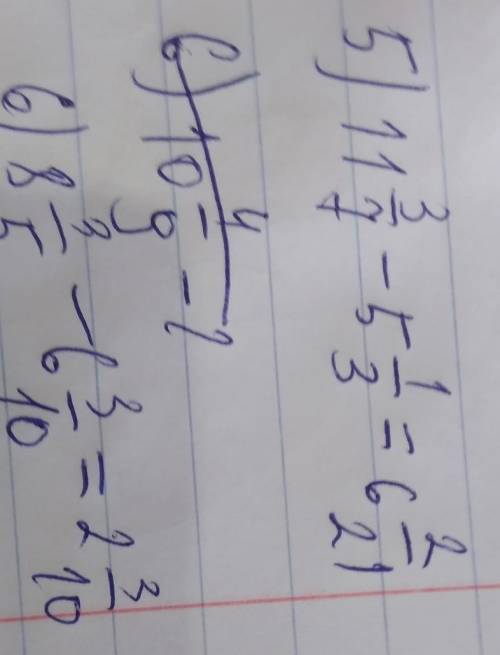 5) 11 3/7 - 5 1/3 = 6 2/21
6) 10 4/9 - 7
6) 8 3/5 - 6 3/10 = 2 3/10